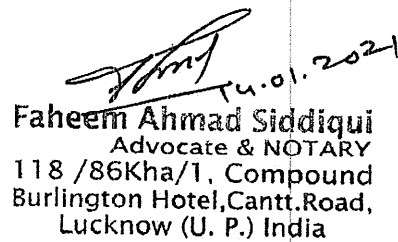 14.01.2021
Faheem Ahmad Siddiqui
Advocate & NOTARY
118 /86Kha/1, Compound
Burlington Hotel,Cantt.Road,
Lucknow (U. P.) India